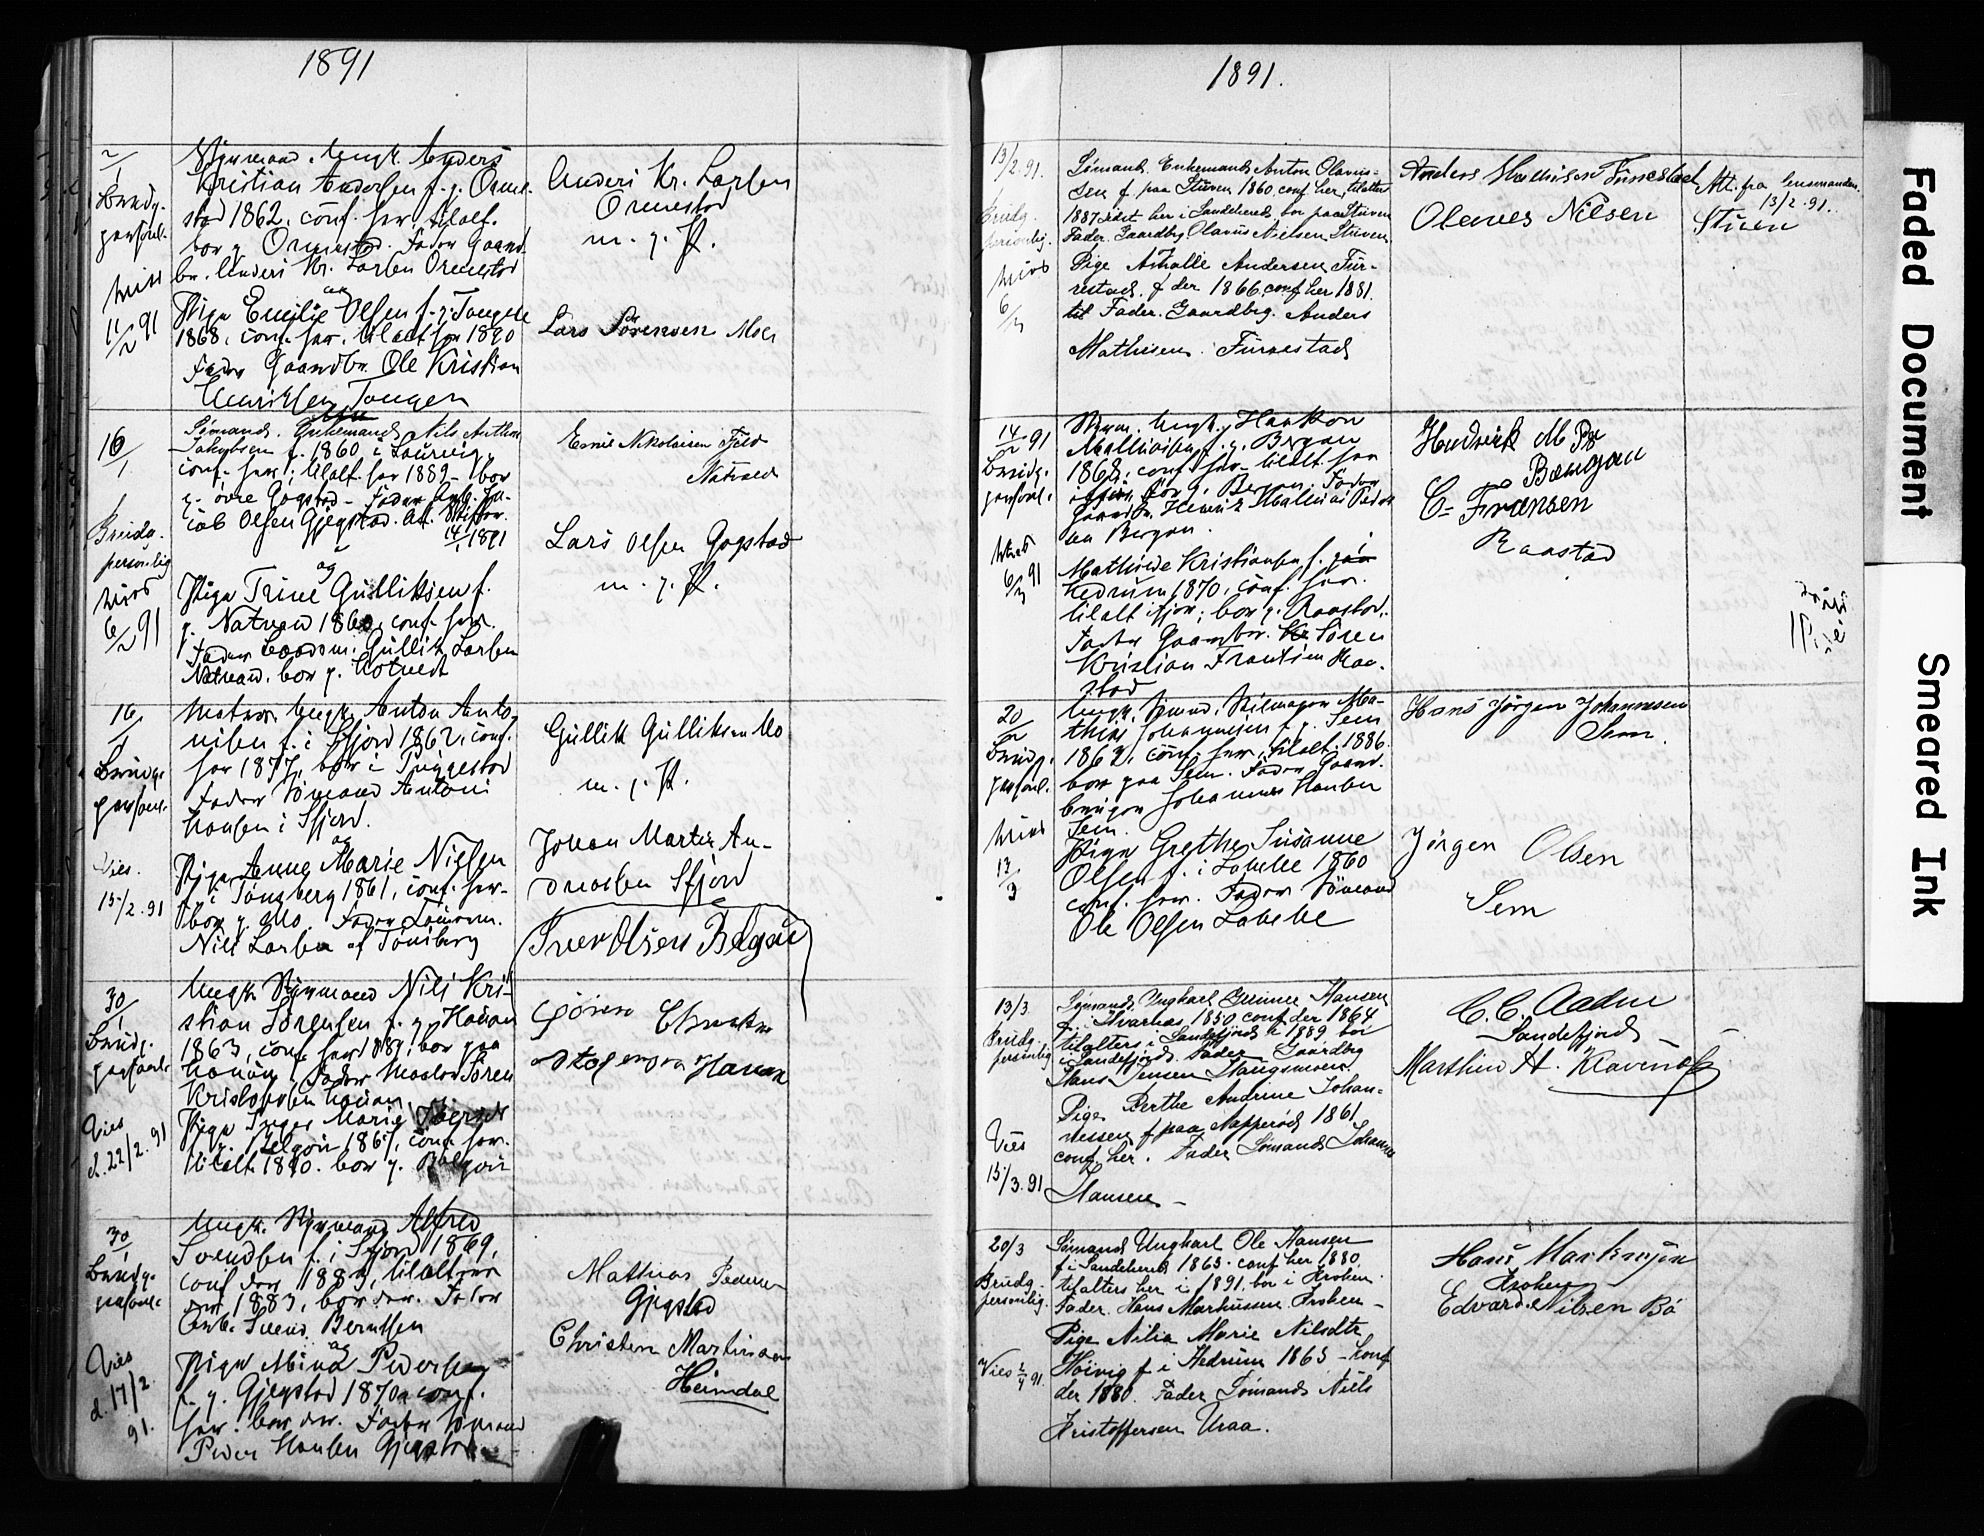 1891
2/1
Brudg.
personl.
Viet
11/2 91
Styrmand. Ungk. Anders
Kristian Andersen f. p. Ormestad
stad 1862. conf. her tilalt.
bor p. Ormestad. Fader Gaard-
br. Anders Kr. Larsen Ormestad
og
Pige Emilie Olsen f. p. Tangen
1868, conf. her. tilalt her 1890
Fader Gaardbr. Ole Kristian
Henriksen Tangen
Anders Kr. Larsen
Ormestad
m. p. P.
Lars Sörensen Moe
16/1
Brudg.
personlig
Viet
6/2 91
Sømand. Enkemand Nils Anthon
Jakobsen f. 1860 i Laurvig
conf. her; tilalt her 1889 - bor
p. övre Gogstad - Fader Arb. Ja-
cob Olsen Gjegstad. Att. Skifter.
14/1 1891
og
Pige Trine Gulliksen f.
p. Natvad 1860, conf. her.
Fader Lodsm. Gullik Larsen
Natvad. bor p. Kotvedt
Emil Nikolaisen Fjeld
Natvad
Lars Olsen Gogstad
m. p. P.
16/1
Brudg.
personl.
Vies.
15/2.91
Matros. Ungk. Anton Anto-
nisen f. i Sfjord 1862, conf.
her 1877, bor i Puggestad
Fader Sömand Antoni
Hansen i Sfjord.
og
Pige Anne Marie Nielsen
f. i Tönsberg 1861, conf. her-
bor p. Mo. Fader Tömerm.
Nils Larsen af Tönsberg
Gullik Gulliksen Mo
m. p. P.
Johan Martin An-
dreasen Sfjord
Iver Olsen Bálgau
30/1
Brudg.
personl.
Vies
d. 22/2.91
Ungk. Styrmand Nils Kri-
stian Sörensen f. p. Hauan
1863, conf. her 1881, bor paa
Hauan, Fader Sören
Kristofersen Hauan
Pige Inger Marie
1867, conf. her.
tilalt 1890. bor p.
Sören Christen
Hauan
30/1
Brudg.
personl.
Vies
d. 17/2
91.
Ungk. Styrmand Alfred
Svendsen f. i Sfjord 1869,
conf der 1883, tilalt
1883, bor der. Fader
Arb. Svend Berntsen
og
Pige Mina Pedersen
f. p. Gjegstad 1870, conf.
her. bor der. Fader Sömand
Peder Hansen Gjegstad
Mathias Pedersen
Gjegstad
Christen Martinsen
Heimdal
1891.
13/2.91.
Brudg.
personlig.
Vies
6/3
Sømand. Enkemand Anton Olavus-
sen f. paa Stüven 1860, conf her, tilalters
1887 sidst her i Sandeherred, bor paa Stüven
Fader. Gaardbrg. Olavus Nielsen Stüven
Pige Athalie Andersen Fur-
restad. f der 1866, conf her 1881.
til Fader. Gaardbrg. Anders
Mathisen. Furrestad
Anders Mathisen Furrestad
Olaves Nilsen
Stuen
Att. fra lensmanden.
13/2-91.
14/2 91
Brudg.
personl.
Viet
6/3 91
Styrm. Ungk. Haakon
Mathiasen f. p. Bergan
1868, conf. her - tilalt her
bor p. Bergan. Fader
Gaardbr. Henrik Mathias Peder-
sen Bergan.
Mathilde Kristiansen f. paa i
Hedrum 1870, conf. her.
tilalt ifjor; bor p. Raastad.
Fader Gaardbr. Kr Sören
Kristian Frantsen Raa-
stad
Hendrik M. P.
Baugan
C. Fransen
Raastad
20/2
Brudg.
personl.
Viet
13/3
Ungk. Sömand. Mat-
thias Johannesen f. p. Sem
1862, conf. her, tilalt. 1886.
bor paa Sem. Fader Gaard-
bruger Johannes Hansen
Sem.
Pige Grethe Susanne
Olsen f. i Labakke 1860
conf. her. Fader Sömand
Ole Olsen Labakke
Hans Jørgen Johannesen
Sem.
Jörgen Olsen
Sem
13/3
Brudg.
personlig
Vies
15/3.91
Sømand Ungkarl Gunner Hansen
f. i Hvarnes 1850 conf der 1864
tilalters i Sandefjord i 1889 bor
i Sandefjord. Fader Gaardbrg
Hans Jensen Haugsmoen
Pige Berthe Andrine Johan-
nessen f paa Napperød 1861.
conf her. Fader Sømand Johannes
Hansen -
C. C. Aadne
Sandefjord
Marthin H. Klavenes
20/3
Brudg.
personlig.
Vies 2/4 91.
Sømand Ungkarl Ole Hansen
f i Sandeherred 1865. conf her 1880.
tilalters her i 1891. bor i Kroken.
Fader. Hans Markussen Kroken -
Pige Nilia Marie Nilsdtr
Høivig f i Hedrum 1865 - konf
der 1880. Fader Sømand Niels
Kristoffersen Uraa.
Hans Markusjen
Kroken
Edvard Nilsen Bö
Faded Document
Smeared Ink